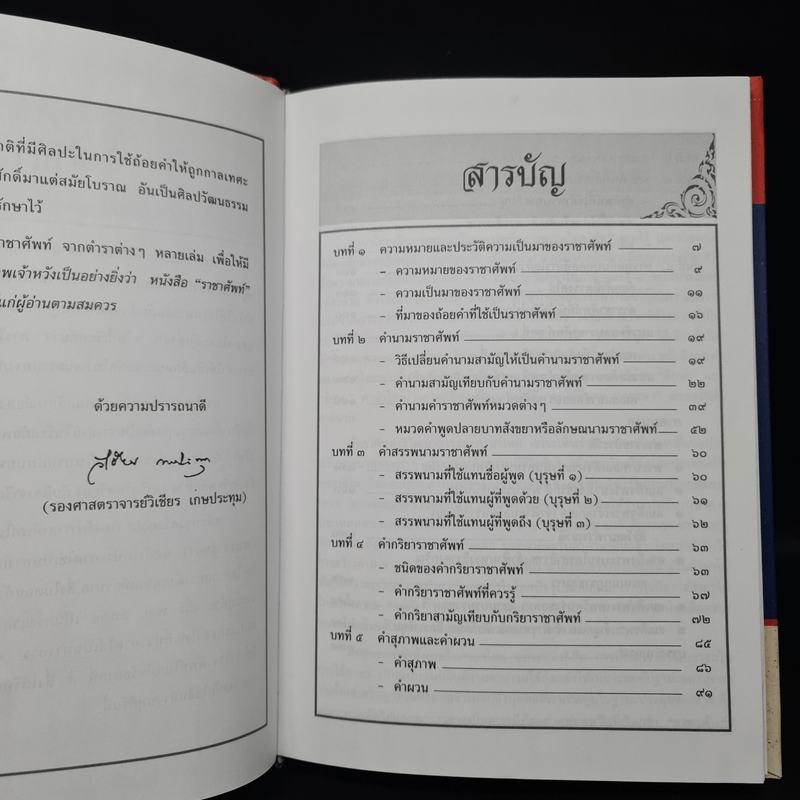 าติที่มีศิลปะในการใช้ถ้อยคำให้ถูกกาลเทศะ
ักดิ์มาแต่สมัยโบราณ อันเป็นศิลปวัฒนธรรม
รักษาไว้
าชาศัพท์ จากตำราต่างๆ หลายเล่ม เพื่อให้มี
พเจ้าหวังเป็นอย่างยิ่งว่า หนังสือ “ราชาศัพท์”
แก่ผู้อ่านตามสมควร
ด้วยความปรารถนาดี
(รองศาสตราจารย์วิเชียร เกษประทุม)
สารบัญ
บทที่ ๑ ความหมายและประวัติความเป็นมาของราชาศัพท์ ๗
- ความหมายของราชาศัพท์ ๙
- ความเป็นมาของราชาศัพท์ ๑๑
- ที่มาของถ้อยคำที่ใช้เป็นราชาศัพท์ ๑๖
บทที่ ๒ คำนามราชาศัพท์ ๑๙
- วิธีเปลี่ยนคำนามสามัญให้เป็นคำนามราชาศัพท์ ๑๙
- คำนามสามัญเทียบกับคำนามราชาศัพท์ ๒๒
- คำนามคำราชาศัพท์หมวดต่างๆ ๓๙
- หมวดคำพูดปลายบาทสังขยาหรือลักษณนามราชาศัพท์ ๕๒
บทที่ ๓ คำสรรพนามราชาศัพท์ ๖๐
- สรรพนามที่ใช้แทนชื่อผู้พูด (บุรุษที่ ๑) ๖๐
- สรรพนามที่ใช้แทนผู้ที่พูดด้วย (บุรุษที่ ๒) ๖๑
- สรรพนามที่ใช้แทนผู้ที่พูดถึง (บุรุษที่ ๓) ๖๒
บทที่ ๔ คำกริยาราชาศัพท์ ๖๓
- ชนิดของคำกริยาราชาศัพท์ ๖๓
- คำกริยาราชาศัพท์ที่ควรรู้ ๖๗
- คำกริยาสามัญเทียบกับกริยาราชาศัพท์ ๗๒
บทที่ ๕ คำสุภาพและคำผวน ๘๕
- คำสุภาพ ๘๖
- คำผวน ๙๑